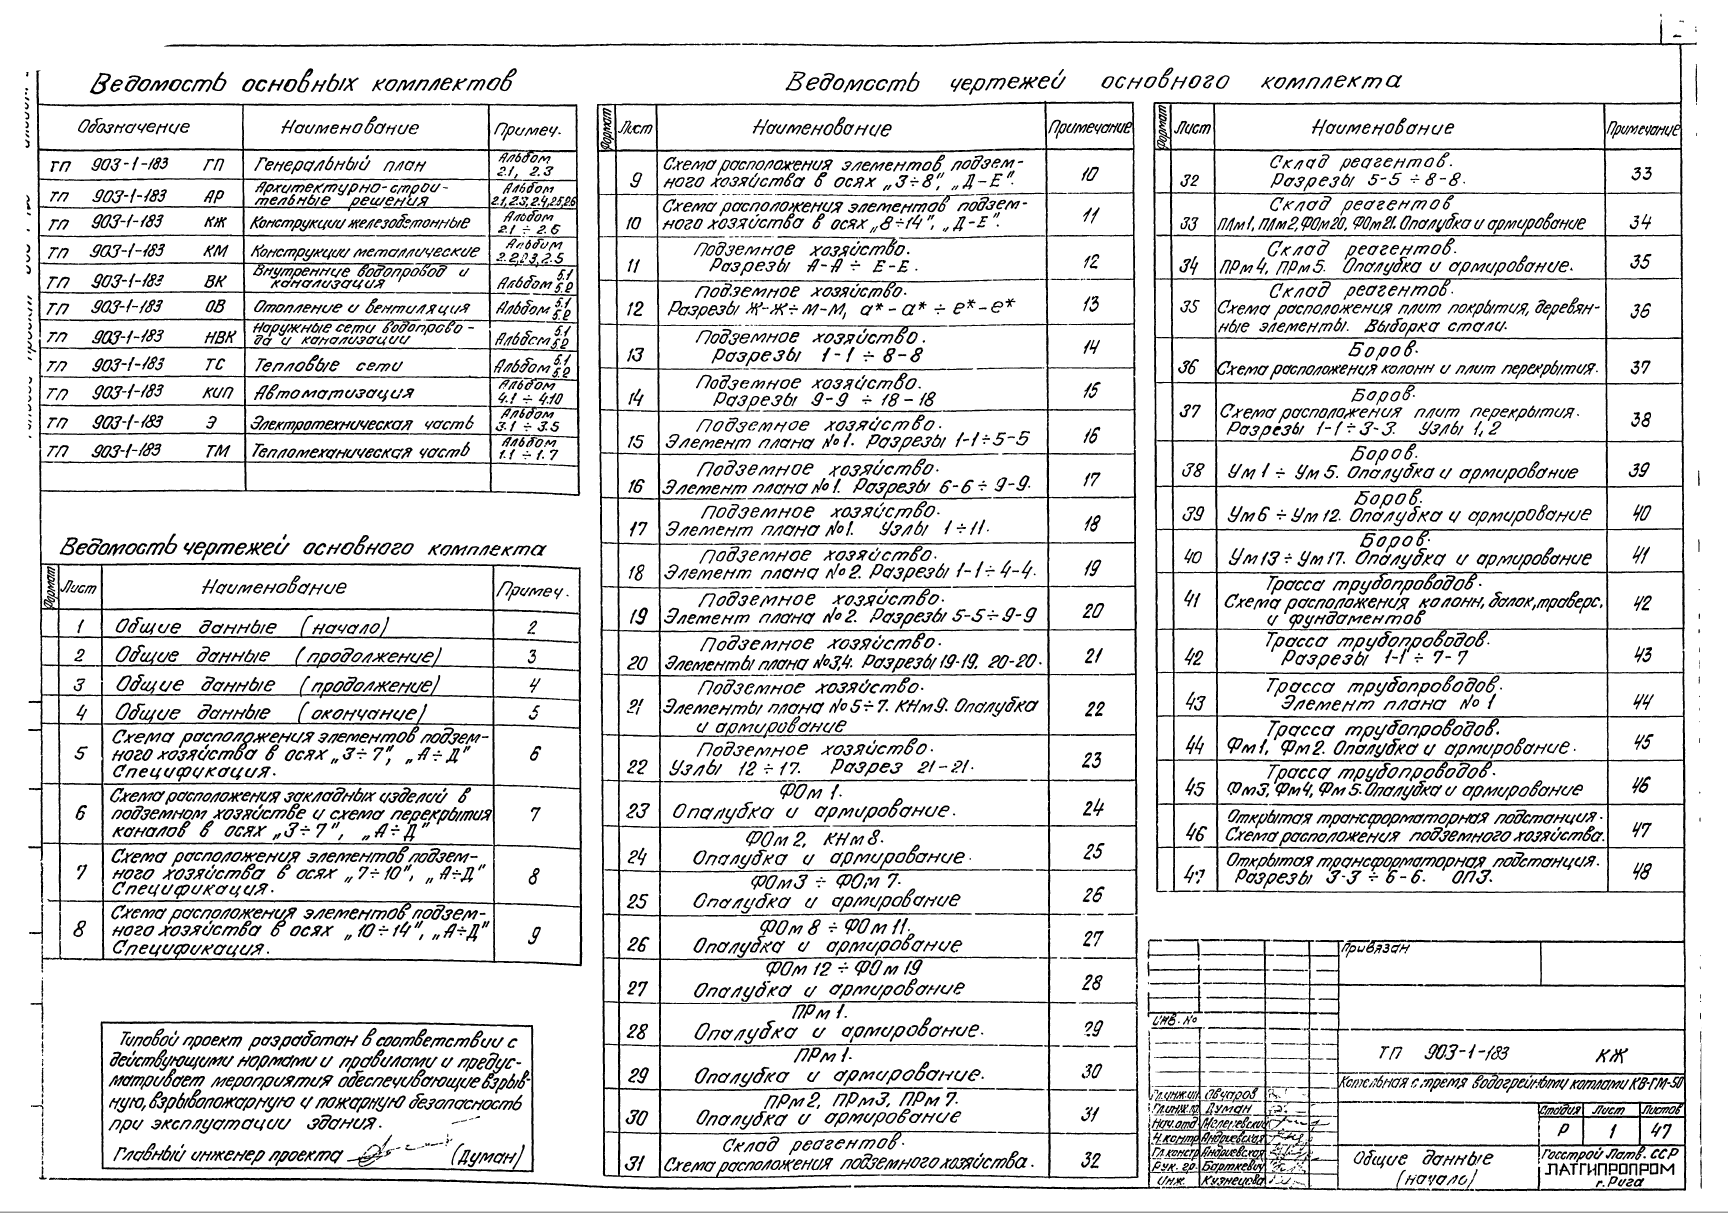 Ведомость основных комплектов
Обозначение Наименование Примеч.
ТП 903-1-183 ГП Генеральный план Альбом 2.1, 2.3
ТП 903-1-183 АР Архитектурно-строи-
тельные решения Альбом 2.1, 2.3, 2.4, 2.5, 2.6
ТП 903-1-183 КЖ Конструкции железобетонные Альбом 2.1 ÷ 2.6
ТП 903-1-183 КМ Конструкции металлические Альбом 2.2, 2.3, 2.5
ТП 903-1-183 ВК Внутренние водопровод и
канализация Альбом 5.1 5.2
ТП 903-1-183 ОВ Отопление и вентиляция Альбом 5.1 5.2
ТП 903-1-183 НВК Наружные сети водопрово-
да и канализации Альбом 5.1 5.2
ТП 903-1-183 ТС Тепловые сети Альбом 5.1 5.2
ТП 903-1-183 КИП Автоматизация Альбом 4.1 ÷ 4.10
ТП 903-1-183 Э Электротехническая часть Альбом 3.1 ÷ 3.5
ТП 903-1-183 ТМ Тепломеханическая часть Альбом 1.1 ÷ 1.7
Ведомость чертежей основного комплекта
Формат Лист Наименование Примеч.
1 Общие данные (начало) 2
2 Общие данные (продолжение) 3
3 Общие данные (продолжение) 4
4 Общие данные (окончание) 5
5 Схема расположения элементов подзем-
ного хозяйства в осях „3÷7", „А÷Д"
Спецификация. 6
6 Схема расположения закладных изделий в
подземном хозяйстве и схема перекрытия
каналов в осях „3÷7", „А÷Д" 7
7 Схема расположения элементов подзем-
ного хозяйства в осях „7÷10", „А÷Д"
Спецификация. 8
8 Схема расположения элементов подзем-
ного хозяйства в осях „10÷14", „А÷Д"
Спецификация. 9
Типовой проект разработан в соответствии с
действующими нормами и правилами и предус-
матривает мероприятия обеспечивающие взрыв-
ную, взрывопожарную и пожарную безопасность
при эксплуатации здания.
Главный инженер проекта (Думан)
Ведомость чертежей основного комплекта
Формат Лист Наименование Примечание
9 Схема расположения элементов подзем-
ного хозяйства в осях „3÷8", „Д-Е". 10
10 Схема расположения элементов подзем-
ного хозяйства в осях „8÷14", „Д-Е". 11
11 Подземное хозяйство.
Разрезы А-А ÷ Е-Е. 12
12 Подземное хозяйство.
Разрезы Ж-Ж÷М-М, а*-а* ÷ е*-е* 13
13 Подземное хозяйство.
Разрезы 1-1 ÷ 8-8 14
14 Подземное хозяйство.
Разрезы 9-9 ÷ 18-18 15
15 Подземное хозяйство.
Элемент плана №1. Разрезы 1-1÷5-5 16
16 Подземное хозяйство.
Элемент плана №1. Разрезы 6-6 ÷ 9-9. 17
17 Подземное хозяйство.
Элемент плана №1. Узлы 1÷11. 18
18 Подземное хозяйство.
Элемент плана №2. Разрезы 1-1÷4-4. 19
19 Подземное хозяйство.
Элемент плана №2. Разрезы 5-5÷9-9 20
20 Подземное хозяйство.
Элементы плана №3,4. Разрезы 19-19. 20-20. 21
21 Подземное хозяйство.
Элементы плана №5÷7. КНм9. Опалубка
и армирование 22
22 Подземное хозяйство.
Узлы 12÷17. Разрез 21-21. 23
23 ФОм 1.
Опалубка и армирование. 24
24 ФОм 2, КНм 8.
Опалубка и армирование. 25
25 ФОм3 ÷ ФОм 7.
Опалубка и армирование 26
26 ФОм 8 ÷ ФОм 11.
Опалубка и армирование 27
27 ФОм 12 ÷ ФОм 19
Опалубка и армирование 28
28 ПРм 1.
Опалубка и армирование. 29
29 ПРм 1.
Опалубка и армирование. 30
30 ПРм2, ПРм3, ПРм 7.
Опалубка и армирование 31
31 Склад реагентов.
Схема расположения подземного хозяйства. 32
Формат Лист Наименование Примечание
32 Склад реагентов.
Разрезы 5-5 ÷ 8-8. 33
33 Склад реагентов
ПЛм1, ПЛм2, ФОм20, ФОм21. Опалубка и армирование 34
34 Склад реагентов.
ПРм4, ПРм5. Опалубка и армирование. 35
35 Склад реагентов.
Схема расположения плит покрытия, деревян-
ные элементы. Выборка стали. 36
36 Боров.
Схема расположения колонн и плит перекрытия. 37
37 Боров.
Схема расположения плит перекрытия.
Разрезы 1-1÷3-3. Узлы 1,2 38
38 Боров.
Ум 1 ÷ Ум 5. Опалубка и армирование 39
39 Боров.
Ум6 ÷ Ум 12. Опалубка и армирование 40
40 Боров.
Ум13 ÷ Ум17. Опалубка и армирование 41
41 Трасса трубопроводов.
Схема расположения колонн, балок, траверс,
и фундаментов 42
42 Трасса трубопроводов.
Разрезы 1-1 ÷ 7-7 43
43 Трасса трубопроводов.
Элемент плана №1 44
44 Трасса трубопроводов.
Фм1, Фм2. Опалубка и армирование. 45
45 Трасса трубопроводов.
Фм3, Фм4, Фм5. Опалубка и армирование 46
46 Открытая трансформаторная подстанция.
Схема расположения подземного хозяйства. 47
47 Открытая трансформаторная подстанция.
Разрезы 3-3 ÷ 6-6. ОПЗ. 48
Привязан
Инв. №
ТП 903-1-183 КЖ
Котельная с тремя водогрейными котлами КВ-ГМ-50
Гл.инж.ин Овчаров
Гл.инж.пр Думан
Нач.отд
Н.контр Андриевская
Гл.констр Андриевская
Рук. гр. Барткевич
Инж. Кузнецова
Стадия Лист Листов
Р 1 47
Общие данные
(начало)
Госстрой Латв. ССР
ЛАТГИПРОПРОМ
г. Рига